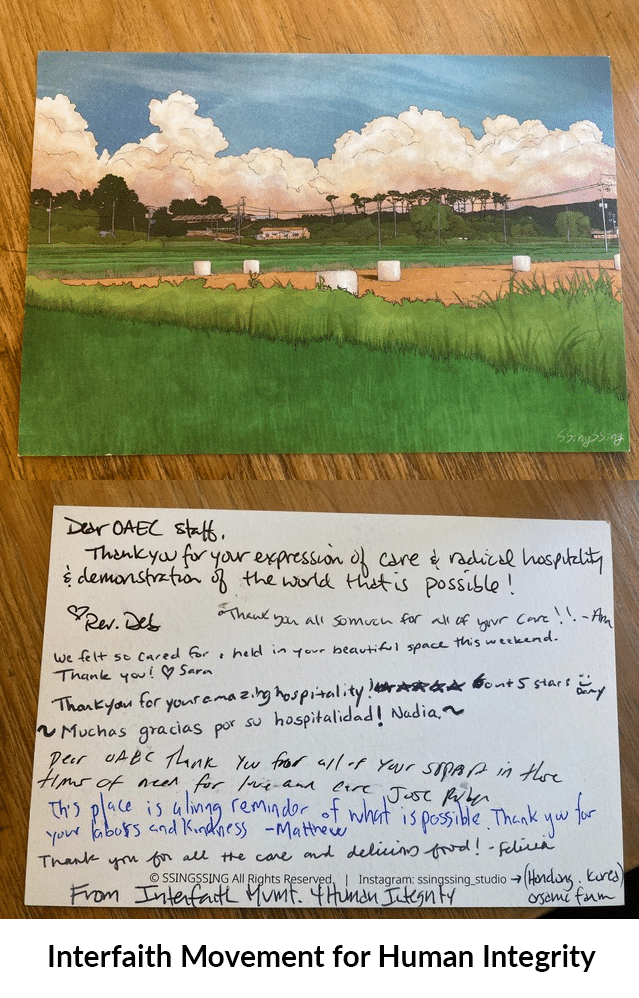 SSingSSing
Dear OAEC staff,
Thank you for your expression of care & radical hospitality
& demonstration of the world that is possible!
♡ Rev. Deb
Thank you all so much for all of your care!! - Ara
We felt so cared for & held in your beautiful space this weekend.
Thank you! ♡ Sara
Thank you for your amazing hospitality! 6 out 5 stars :) Dany
~ Muchas gracias por su hospitalidad! Nadia. ~
Dear OABC Thank You for all of your support in these
times of need for love and care Jose
This place is a living reminder of what is possible. Thank you for
your labors and kindness - Matthew
Thank you for all the care and delicious food! - Felicia
© SSINGSSING All Rights Reserved. | Instagram: ssingssing_studio → (Hondong. Korea)
organic farm
From Interfaith Mvmt. 4 Human Integrity
Interfaith Movement for Human Integrity